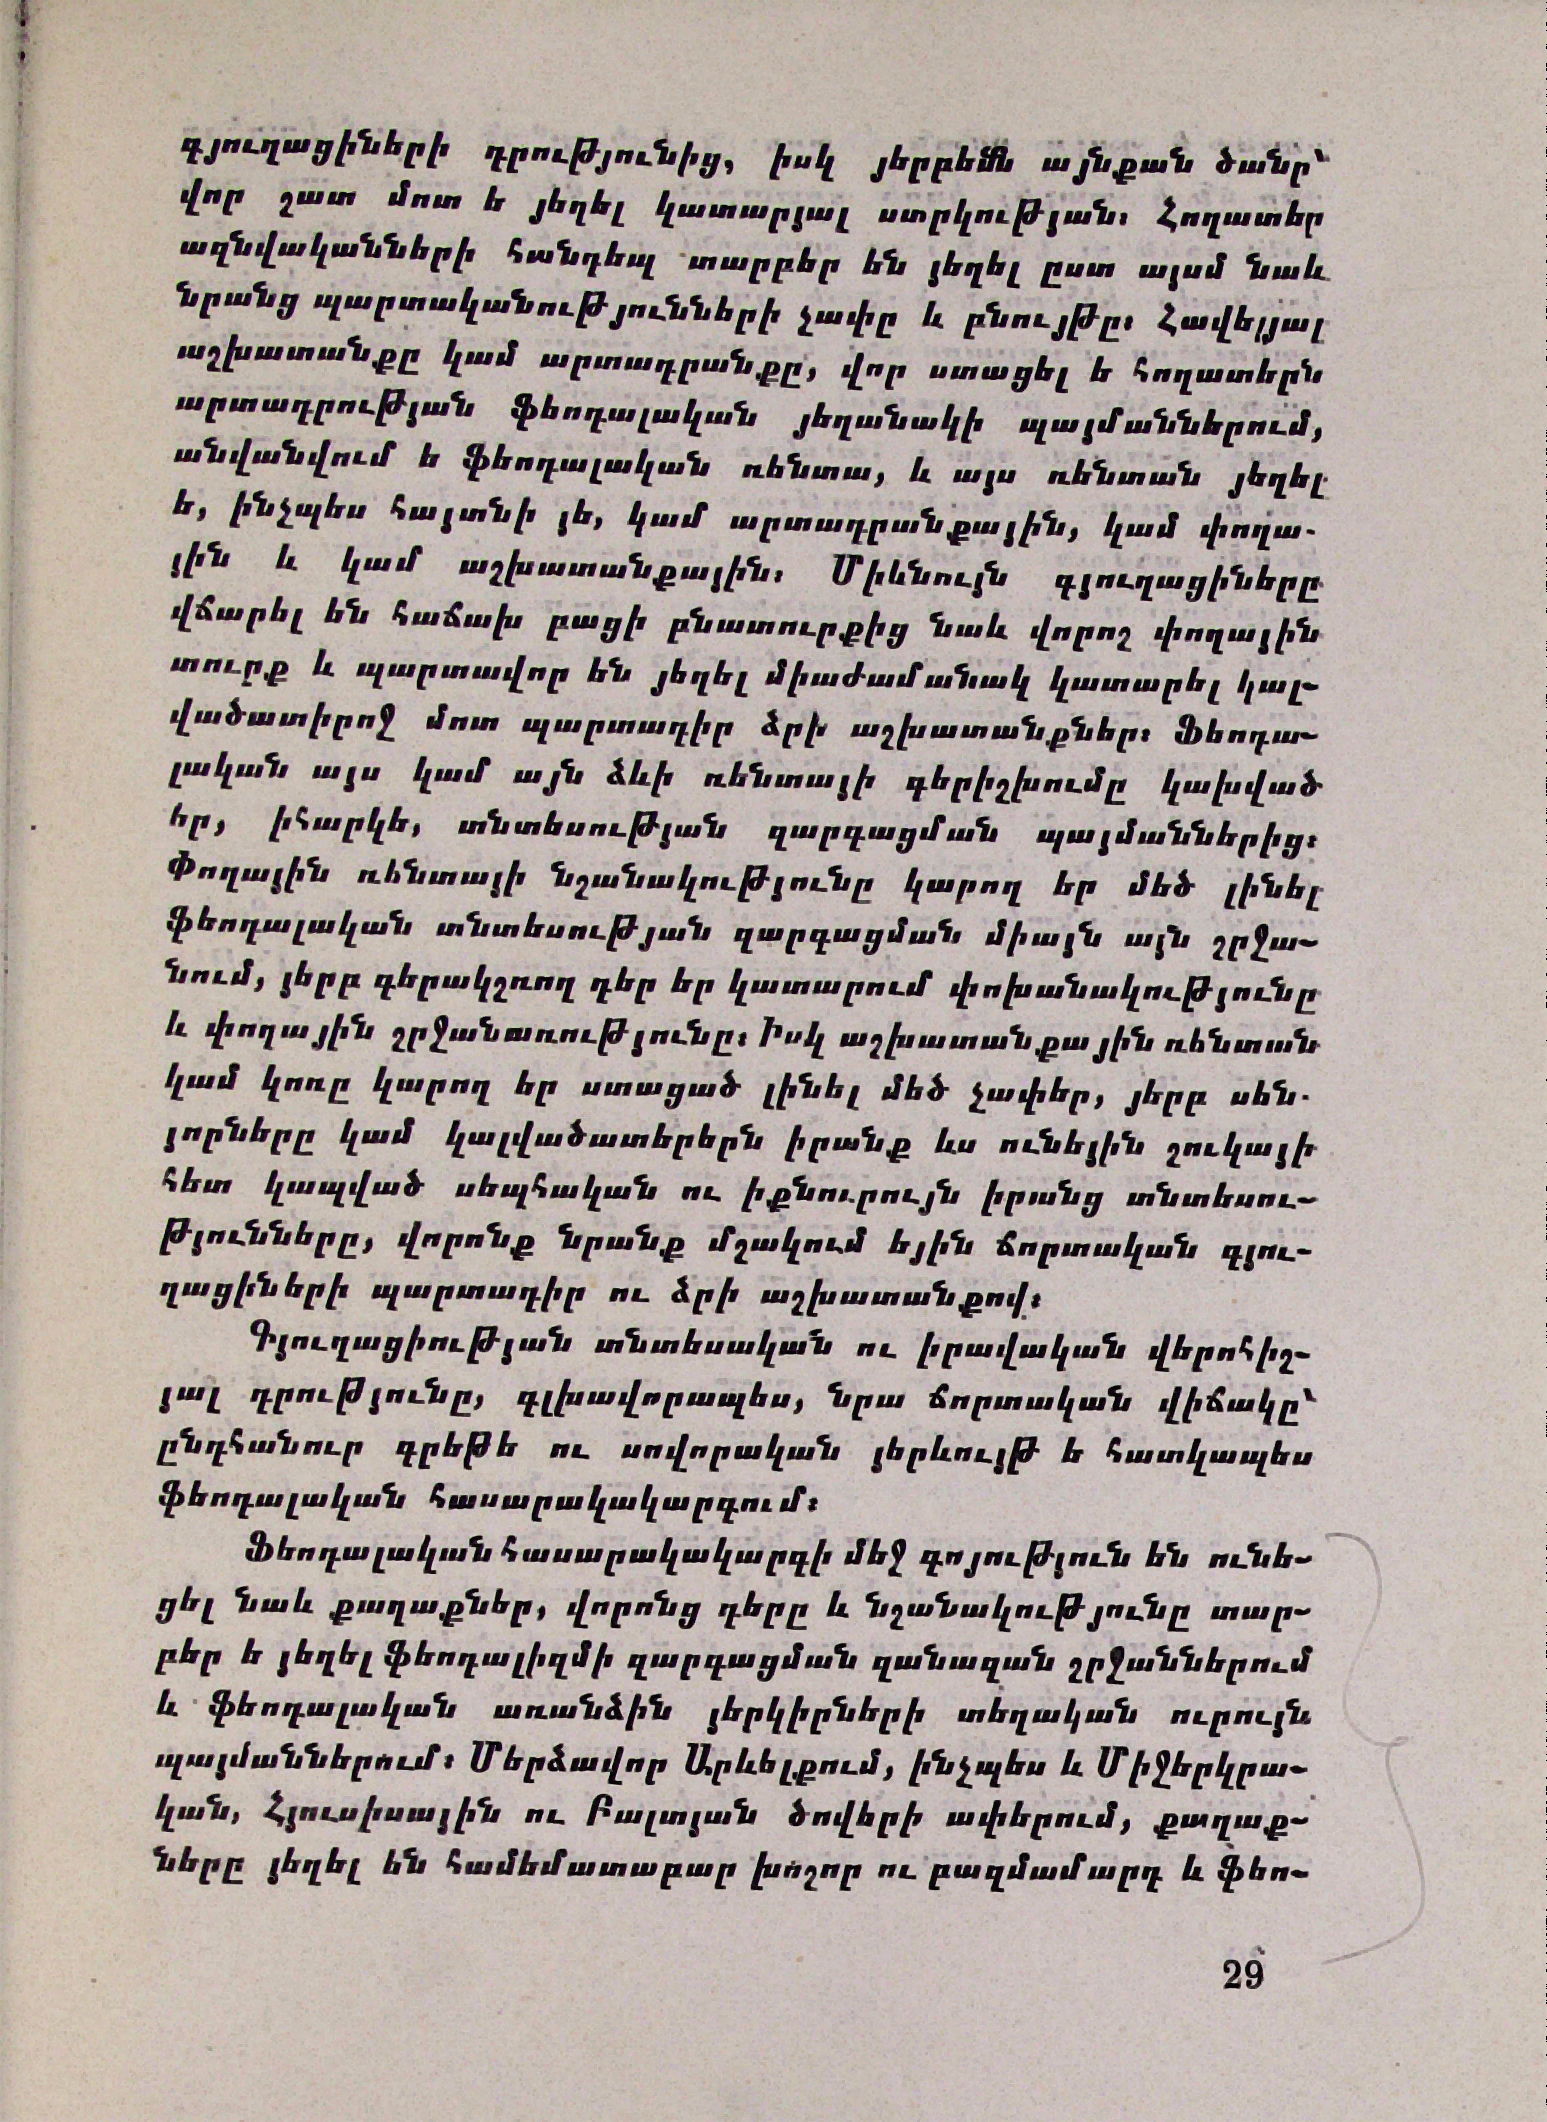 գյուղացիների դրությունից, իսկ յերբեմն այնքան ծանր՝
վոր շատ մոտ ե յեղել կատարյալ ստրկության։ Հողատեր
ազնվականների հանդեպ տարբեր են յեղել ըստ այսմ նաև
նրանց պարտականությունների չափը և բնույթը։ Հավելյալ
աշխատանքը կամ արտադրանքը, վոր ստացել ե հողատերն
արտադրության ֆեոդալական յեղանակի պայմաններում,
անվանվում ե ֆեոդալական ռենտա, և այս ռենտան յեղել
ե, ինչպես հայտնի յե, կամ արտադրանքային, կամ փողա-
յին և կամ աշխատանքային։ Միևնույն գյուղացիները
վճարել են հաճախ բացի բնատուրքից նաև վորոշ փողային
տուրք և պարտավոր են յեղել միաժամանակ կատարել կալ-
վածատիրոջ մոտ պարտադիր ձրի աշխատանքներ։ Ֆեոդա-
լական այս կամ այն ձևի ռենտայի գերիշխումը կախված
եր, իհարկե, տնտեսության զարգացման պայմաններից։
Փողային ռենտայի նշանակությունը կարող եր մեծ լինել
ֆեոդալական տնտեսության զարգացման միայն այն շրջա-
նում, յերբ գերակշռող դեր եր կատարում փոխանակությունը
և փողային շրջանառությունը։ Իսկ աշխատանքային ռենտան
կամ կոռը կարող եր ստացած լինել մեծ չափեր, յերբ սեն-
յորները կամ կալվածատերերն իրանք ևս ունեյին շուկայի
հետ կապված սեպհական ու ինքնուրույն իրանց տնտեսու-
թյունները, վորոնք նրանք մշակում եյին ճորտական գյու-
ղացիների պարտադիր ու ձրի աշխատանքով։
Գյուղացիության տնտեսական ու իրավական վերոհիշ-
յալ դրությունը, գլխավորապես, նրա ճորտական վիճակը՝
ընդհանուր գրեթե ու սովորական յերևույթ ե հատկապես
ֆեոդալական հասարակակարգում։
Ֆեոդալական հասարակակարգի մեջ գոյություն են ունե-
ցել նաև քաղաքներ, վորոնց դերը և նշանակությունը տար-
բեր ե յեղել ֆեոդալիզմի զարգացման զանազան շրջաններում
և ֆեոդալական առանձին յերկիրների տեղական ուրույն
պայմաններում։ Մերձավոր Արևելքում, ինչպես և Միջերկրա-
կան, Հյուսիսային ու Բալտյան ծովերի ափերում, քաղաք-
ները յեղել են համեմատաբար խոշոր ու բազմամարդ և ֆեո-
29